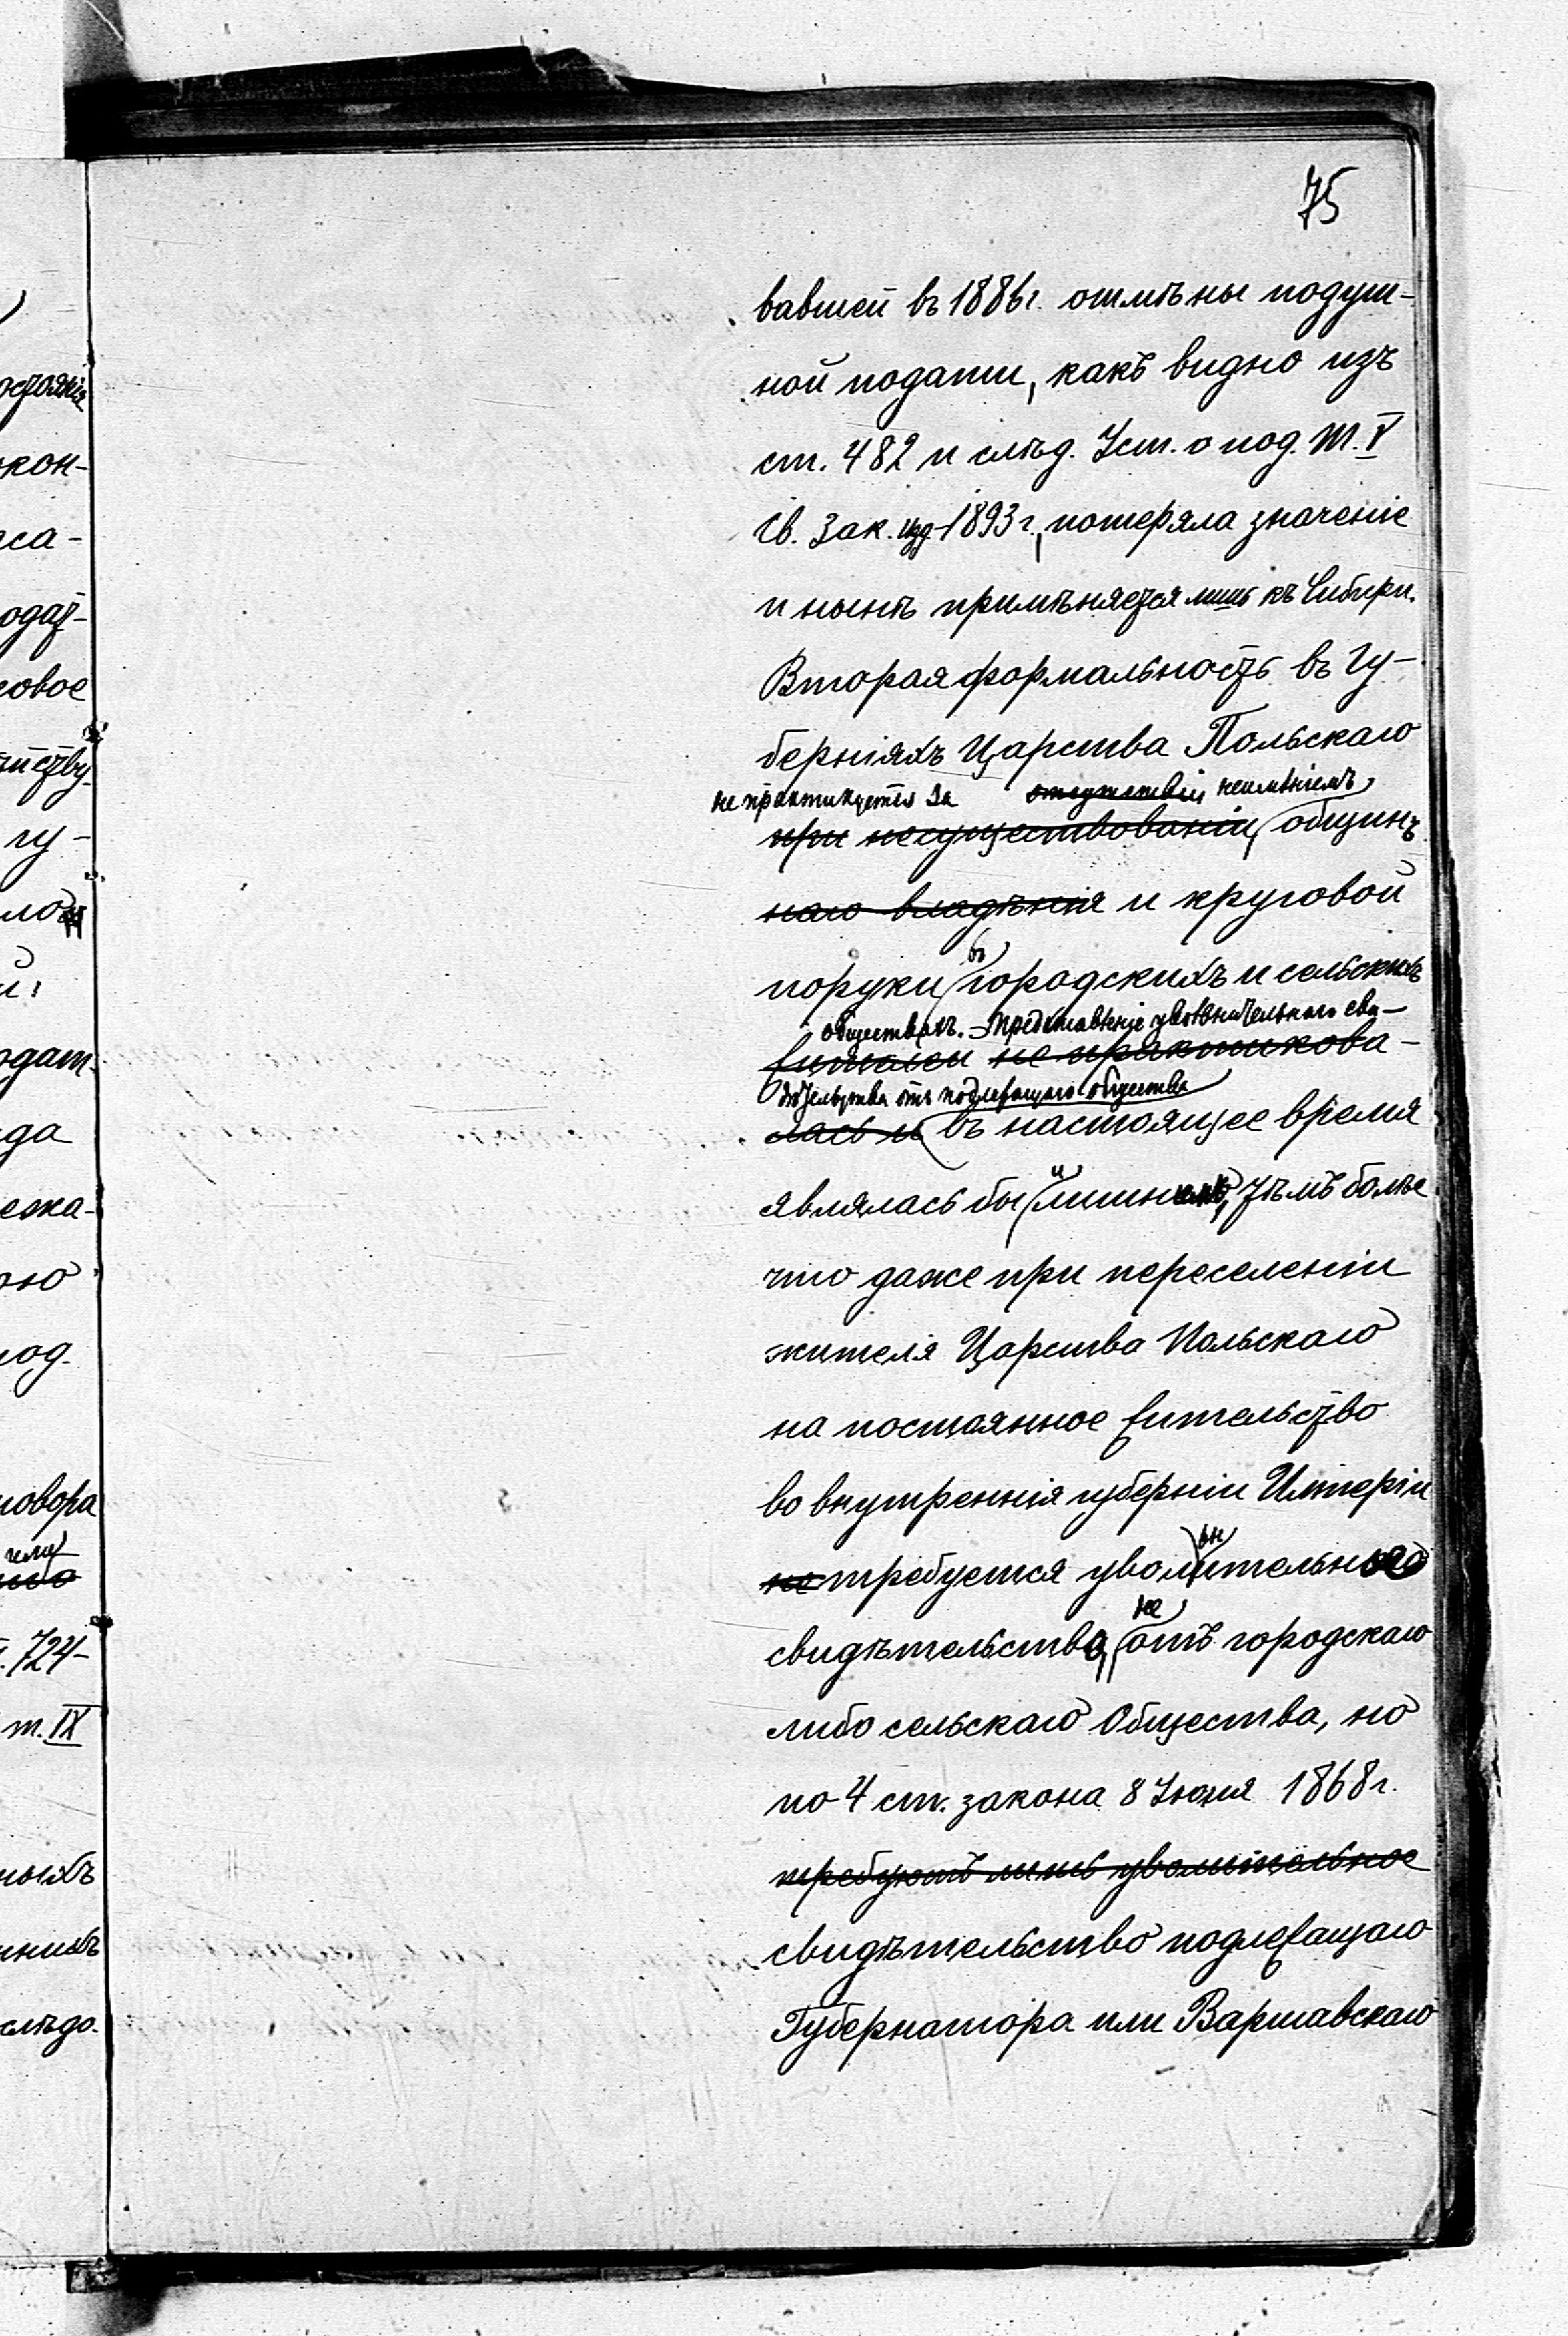 75
вавшей въ 1886 г. отмѣны подуш-
ной подати, какъ видно изъ
ст. 482 и слѣд. Уст. о под. Т. V
Св. Зак. изд. 1893 г., потеряла значеніе
и нынѣ примѣняется лишь къ Сибири.
Вторая формальность въ гу-
берніяхъ Царства Польскаго
не практикуется за отсутствіи неимѣніемъ
при несуществованіи общин
наго владѣнія и круговой
поруки въ городскихъ и сельскихъ
обществахъ. Представленіе увольнительнаго сви-
жителей не практикова-
дѣтельства отъ подлежащаго общества
лась и въ настоящее время
являлась бы и лишн тѣмъ болѣе
что даже при переселеніи
жителя Царства Польскаго
на постоянное жительство
во внутреннія губерніи Имперіи
не требуется увольнительное
свидѣтельство, не отъ городскаго
либо сельскаго Общества, но
по 4 ст. закона 8 Іюня 1868 г.
требуютъ лишь увольнительное
свидѣтельство подлежащаго
Губернатора или Варшавскаго